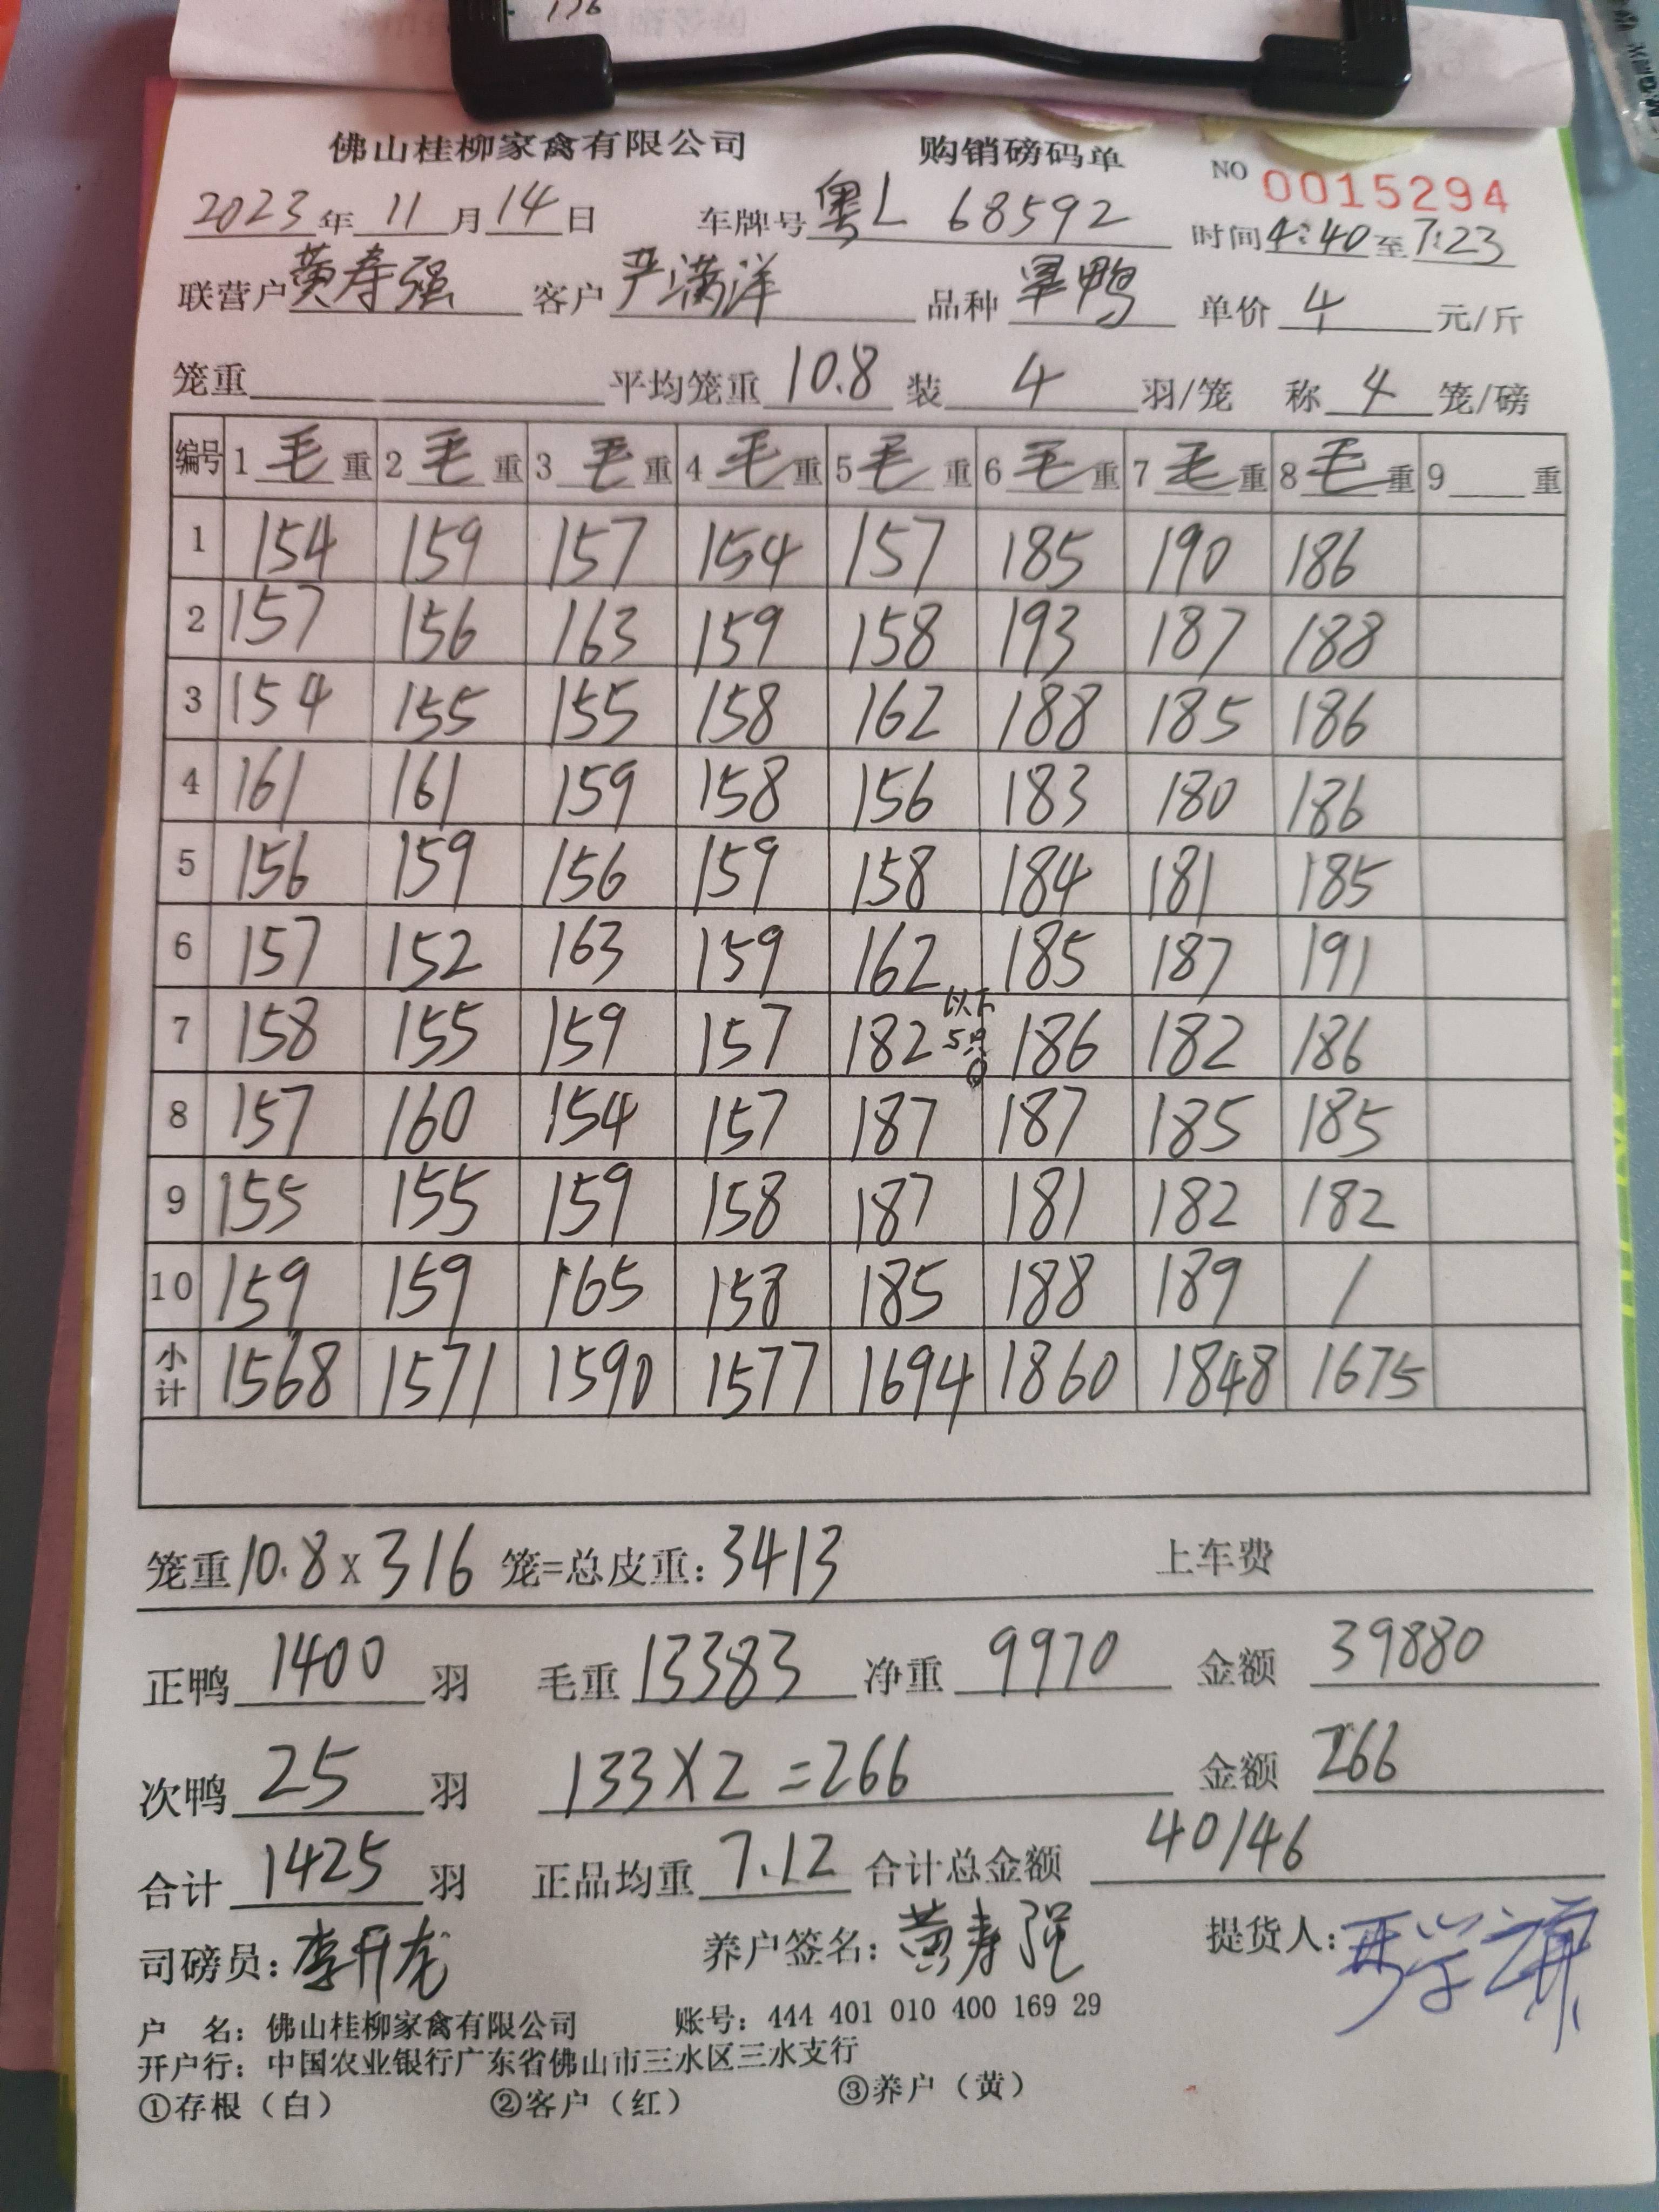 佛山桂柳家禽有限公司 购销磅码单 NO 0015294
2023年 11月14日 车牌号 粤L 68592 时间 4:40 至 7:23
联营户 黄寿强 客户 严满洋 品种 旱鸭 单价 4 元/斤
笼重 平均笼重 10.8 装 4 羽/笼 称 4 笼/磅
编号 1 毛 重 2 毛 重 3 毛 重 4 毛 重 5 毛 重 6 毛 重 7 毛 重 8 毛 重 9 重
1 154 159 157 154 157 185 190 186
2 157 156 163 159 158 193 187 188
3 154 155 155 158 162 188 185 186
4 161 161 159 158 156 183 180 186
5 156 159 156 159 158 184 181 185
6 157 152 163 159 162 185 187 191
7 158 155 159 157 182 以下5只 186 182 186
8 157 160 154 157 187 187 185 185
9 155 155 159 158 187 181 182 182
10 159 159 165 158 185 188 189 /
小计 1568 1571 1590 1577 1694 1860 1848 1675
笼重 10.8 x 316 笼=总皮重: 3413 上车费
正鸭 1400 羽 毛重 13383 净重 9970 金额 39880
次鸭 25 羽 133 X 2 = 266 金额 266
合计 1425 羽 正品均重 7.12 合计总金额 40146
司磅员: 李开龙 养户签名: 黄寿强 提货人:
户 名: 佛山桂柳家禽有限公司 账号: 444 401 010 400 169 29
开户行: 中国农业银行广东省佛山市三水区三水支行
①存根（白） ②客户（红） ③养户（黄）